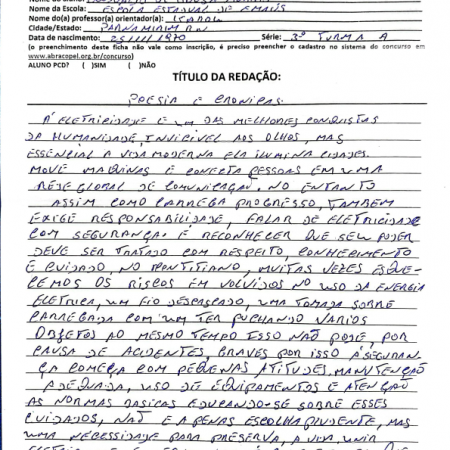 Nome da Escola: ESCOLA ESTADUAL DE EMAÚS
Nome do(a) professor(a) orientador(a):
Cidade/Estado: PARNAMIRIM RN
Data de nascimento: 25/111/1970 Série: 3º TURMA A
(o preenchimento deste ficha não vale como inscrição, é preciso preencher o cadastro no sistema do concurso em
www.abracopel.org.br/concurso)
ALUNO PCD? ( )SIM ( )NÃO
TÍTULO DA REDAÇÃO:
POESIA E CRONICAS.
A ELETRICIDADE E UM DAS MELHORES CONQUISTAS
DA HUMANIDADE, INVICIVEL AOS OLHOS, MAS
ESSENCIAL A VIDA MODERNA ELA ILUMINA CIDADES.
MOVE MAQUINAS E CONECTA PESSOAS EM UMA
REDE GLOBAL DE COMUNICAÇÃO. NO ENTANTO
ASSIM COMO CARREGA PROGRESSO, TAMBEM
EXIGE RESPONSABILIDADE, FALAR DE ELETRICIDADE
COM SEGURANÇA. É RECONHECER QUE SEU PODER
DEVE SER TRATADO COM RESPEITO, CONHECIMENTO
E CUIDADO, NO MUITAS VEZES ESQUE-
CEMOS OS RISCOS EM VOLVIDOS NO USO DA ENERGIA
ELETRICA, UM FIO DESCASCADO, UMA TOMADA SOBRE
CARREGADA COM UM TER PUCHANDO VARIOS
OBJETOS AO MESMO TEMPO ISSO NÃO PODE, POR
CAUSA DE ACIDENTES, GRAVES POR ISSO A SEGURAN-
ÇA COMEÇA COM PEQUENAS ATITUDES. MANUTENÇÃO
ADEQUADA, USO DE EQUIPAMENTOS E ATENÇÃO
AS NORMAS BASICAS EDUCANDO-SE SOBRE ESSES
CUIDADOS, NÃO É APENAS ESCOLHA PRUDENTE, MAS
UMA NECESSIDADE PARA PRESERVA, A VIDA, UNIR